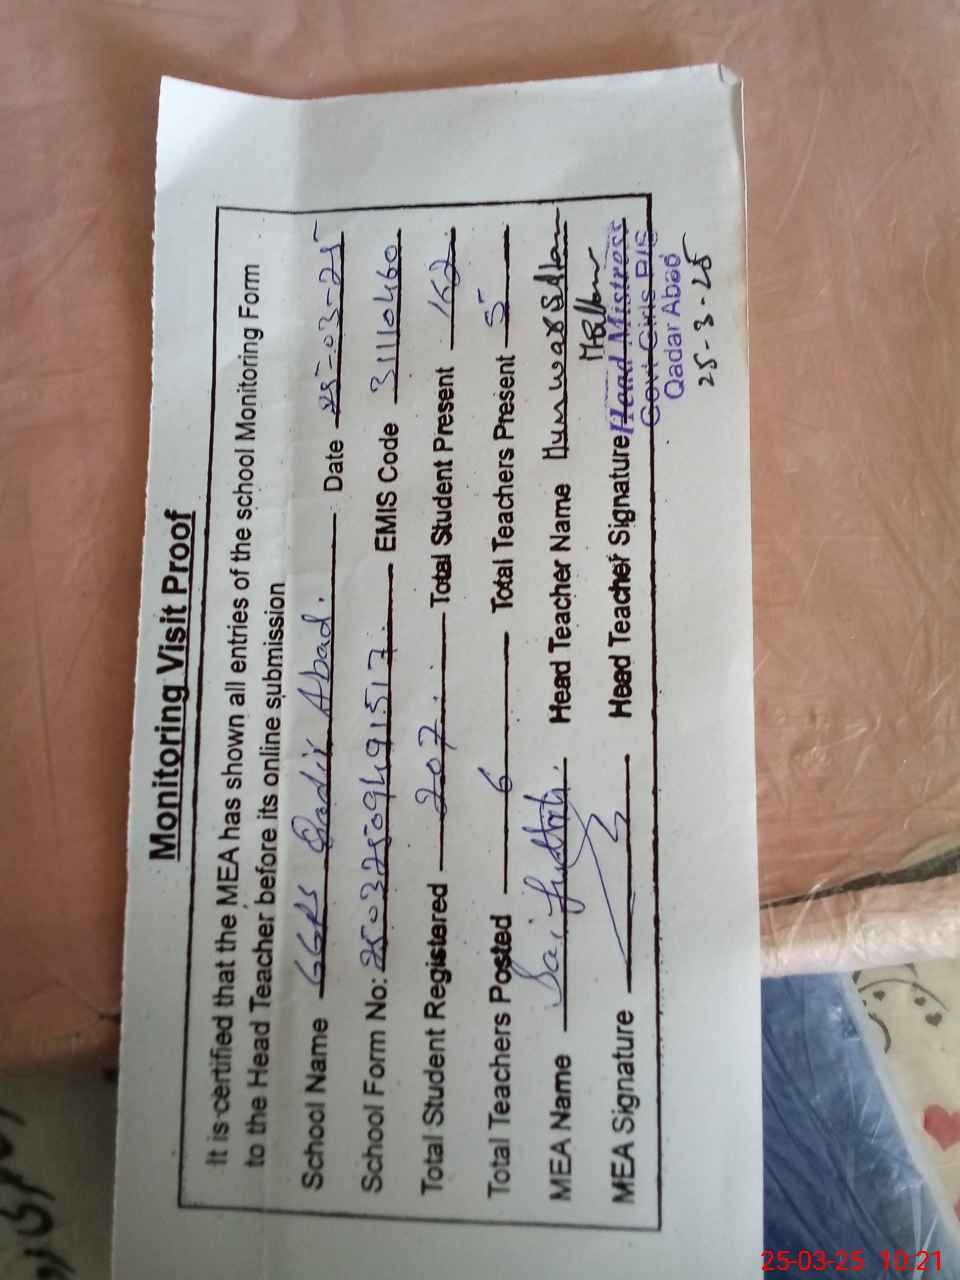 Monitoring Visit Proof
It is certified that the MEA has shown all entries of the school Monitoring Form
to the Head Teacher before its online submission
School Name GGPS Qadir Abad. Date 25-03-25
School Form No: 25032509491517. EMIS Code 31110460
Total Student Registered 207. Total Student Present 152
Total Teachers Posted 6 Total Teachers Present 5
MEA Name Head Teacher Name
MEA Signature Head Teacher Signature Head Mistress
Govt Girls P/S
Qadar Abad
25-3-25
25-03-25 10:21